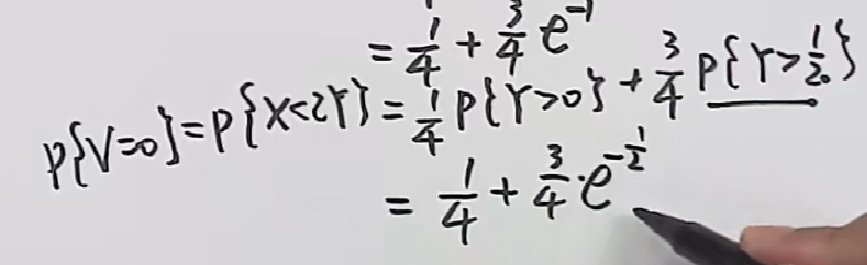 = 1/4 + 3/4 e^{-1}
P{V=0}=P{X<2Y}= 1/4 P{Y>0} + 3/4 P{Y>1/2}
= 1/4 + 3/4·e^{-1/2}